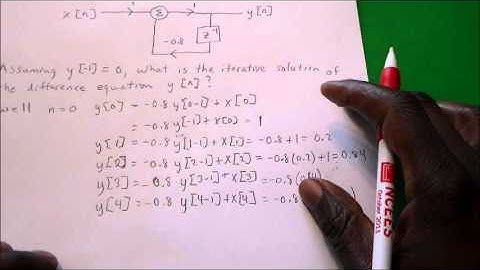 x[n] 1 Σ 1 y[n]
-0.8 z⁻¹
Assuming y[-1]=0, what is the iterative solution of
the difference equation y[n]?
well n=0 y[0] = -0.8 y[0-1] + x[0]
= -0.8 y[-1] + x[0] = 1
y[1] = -0.8 y[1-1] + x[1] = -0.8 + 1 = 0.2
y[2] = -0.8 y[2-1] + x[2] = -0.8(0.2) + 1 = 0.84
y[3] = -0.8 y[3-1] + x[3] = -0.8(0.
y[4] = -0.8 y[4-1] + x[4] = -0.8
NCEES
October 2011